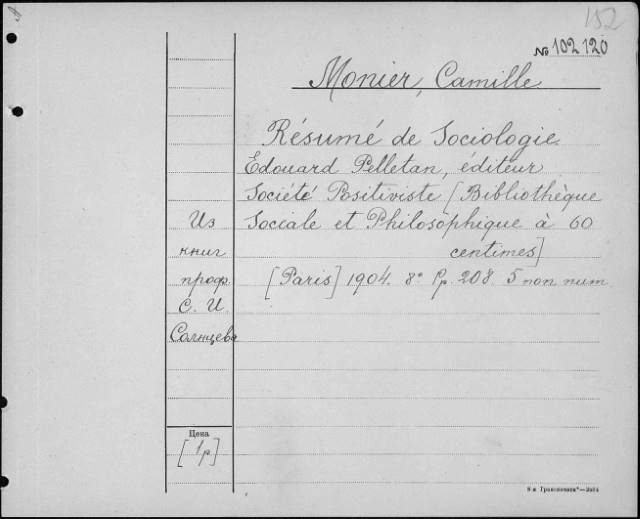 152
№ 102120
Monier, Camille
Résumé de Sociologie
Edouard Pelletan, éditeur
Société Positiviste [Bibliothèque
Sociale et Philosophique à 60
centimes]
[Paris] 1904. 8° Pp. 208. 5 non num.
Из
книг
проф.
С. И.
Солнцева
Цена
[1р]